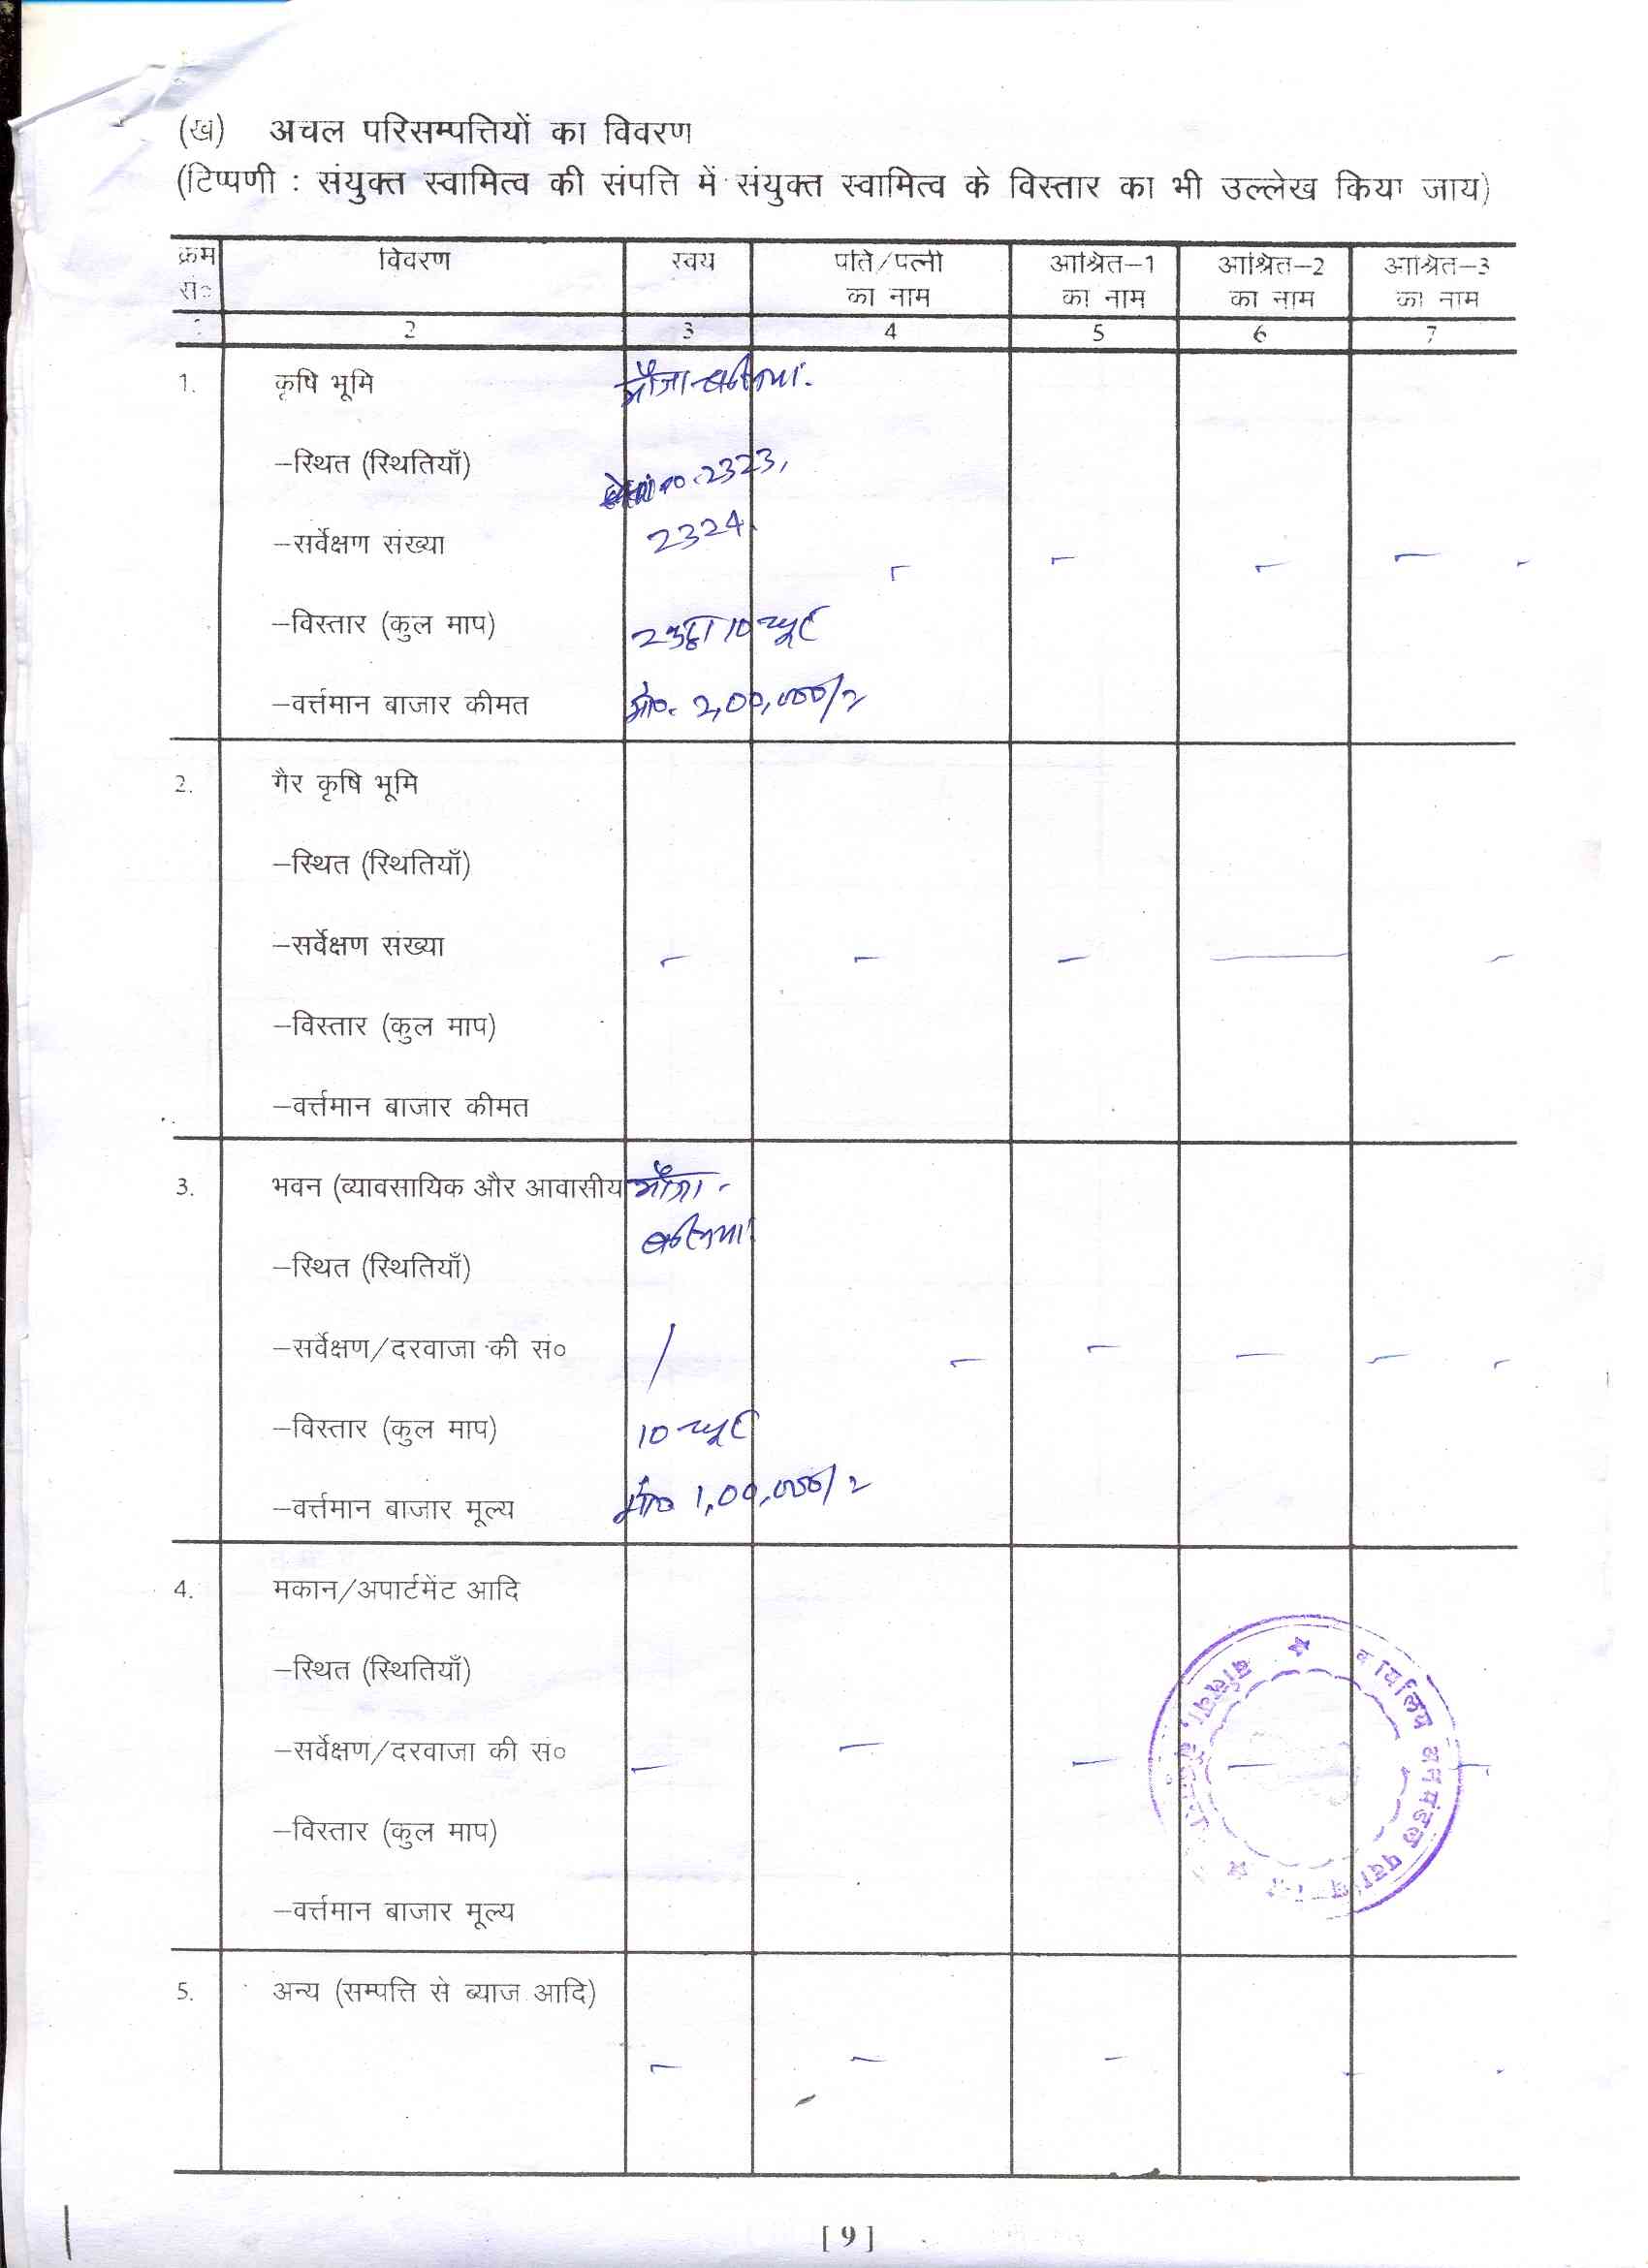 (ख) अचल परिसम्पत्तियों का विवरण
(टिप्पणी : संयुक्त स्वामित्व की संपत्ति में संयुक्त स्वामित्व के विस्तार का भी उल्लेख किया जाय)
क्रम सं० विवरण स्वयं पति/पत्नी का नाम आश्रित-1 का नाम आश्रित-2 का नाम आश्रित-3 का नाम
2 3 4 5 6 7
1. कृषि भूमि मौजा-
-स्थित (स्थितियाँ) 2323,
-सर्वेक्षण संख्या 2324
-विस्तार (कुल माप) 10
-वर्त्तमान बाजार कीमत मो०. 2,00,000/
2. गैर कृषि भूमि
-स्थित (स्थितियाँ)
-सर्वेक्षण संख्या
-विस्तार (कुल माप)
-वर्त्तमान बाजार कीमत
3. भवन (व्यावसायिक और आवासीय मौजा-
-स्थित (स्थितियाँ)
-सर्वेक्षण/दरवाजा की सं०
-विस्तार (कुल माप) 10
-वर्त्तमान बाजार मूल्य मो० 1,00,000/
4. मकान/अपार्टमेंट आदि
-स्थित (स्थितियाँ)
-सर्वेक्षण/दरवाजा की सं०
-विस्तार (कुल माप)
-वर्त्तमान बाजार मूल्य
5. अन्य (सम्पत्ति से ब्याज आदि)
[ 9 ]